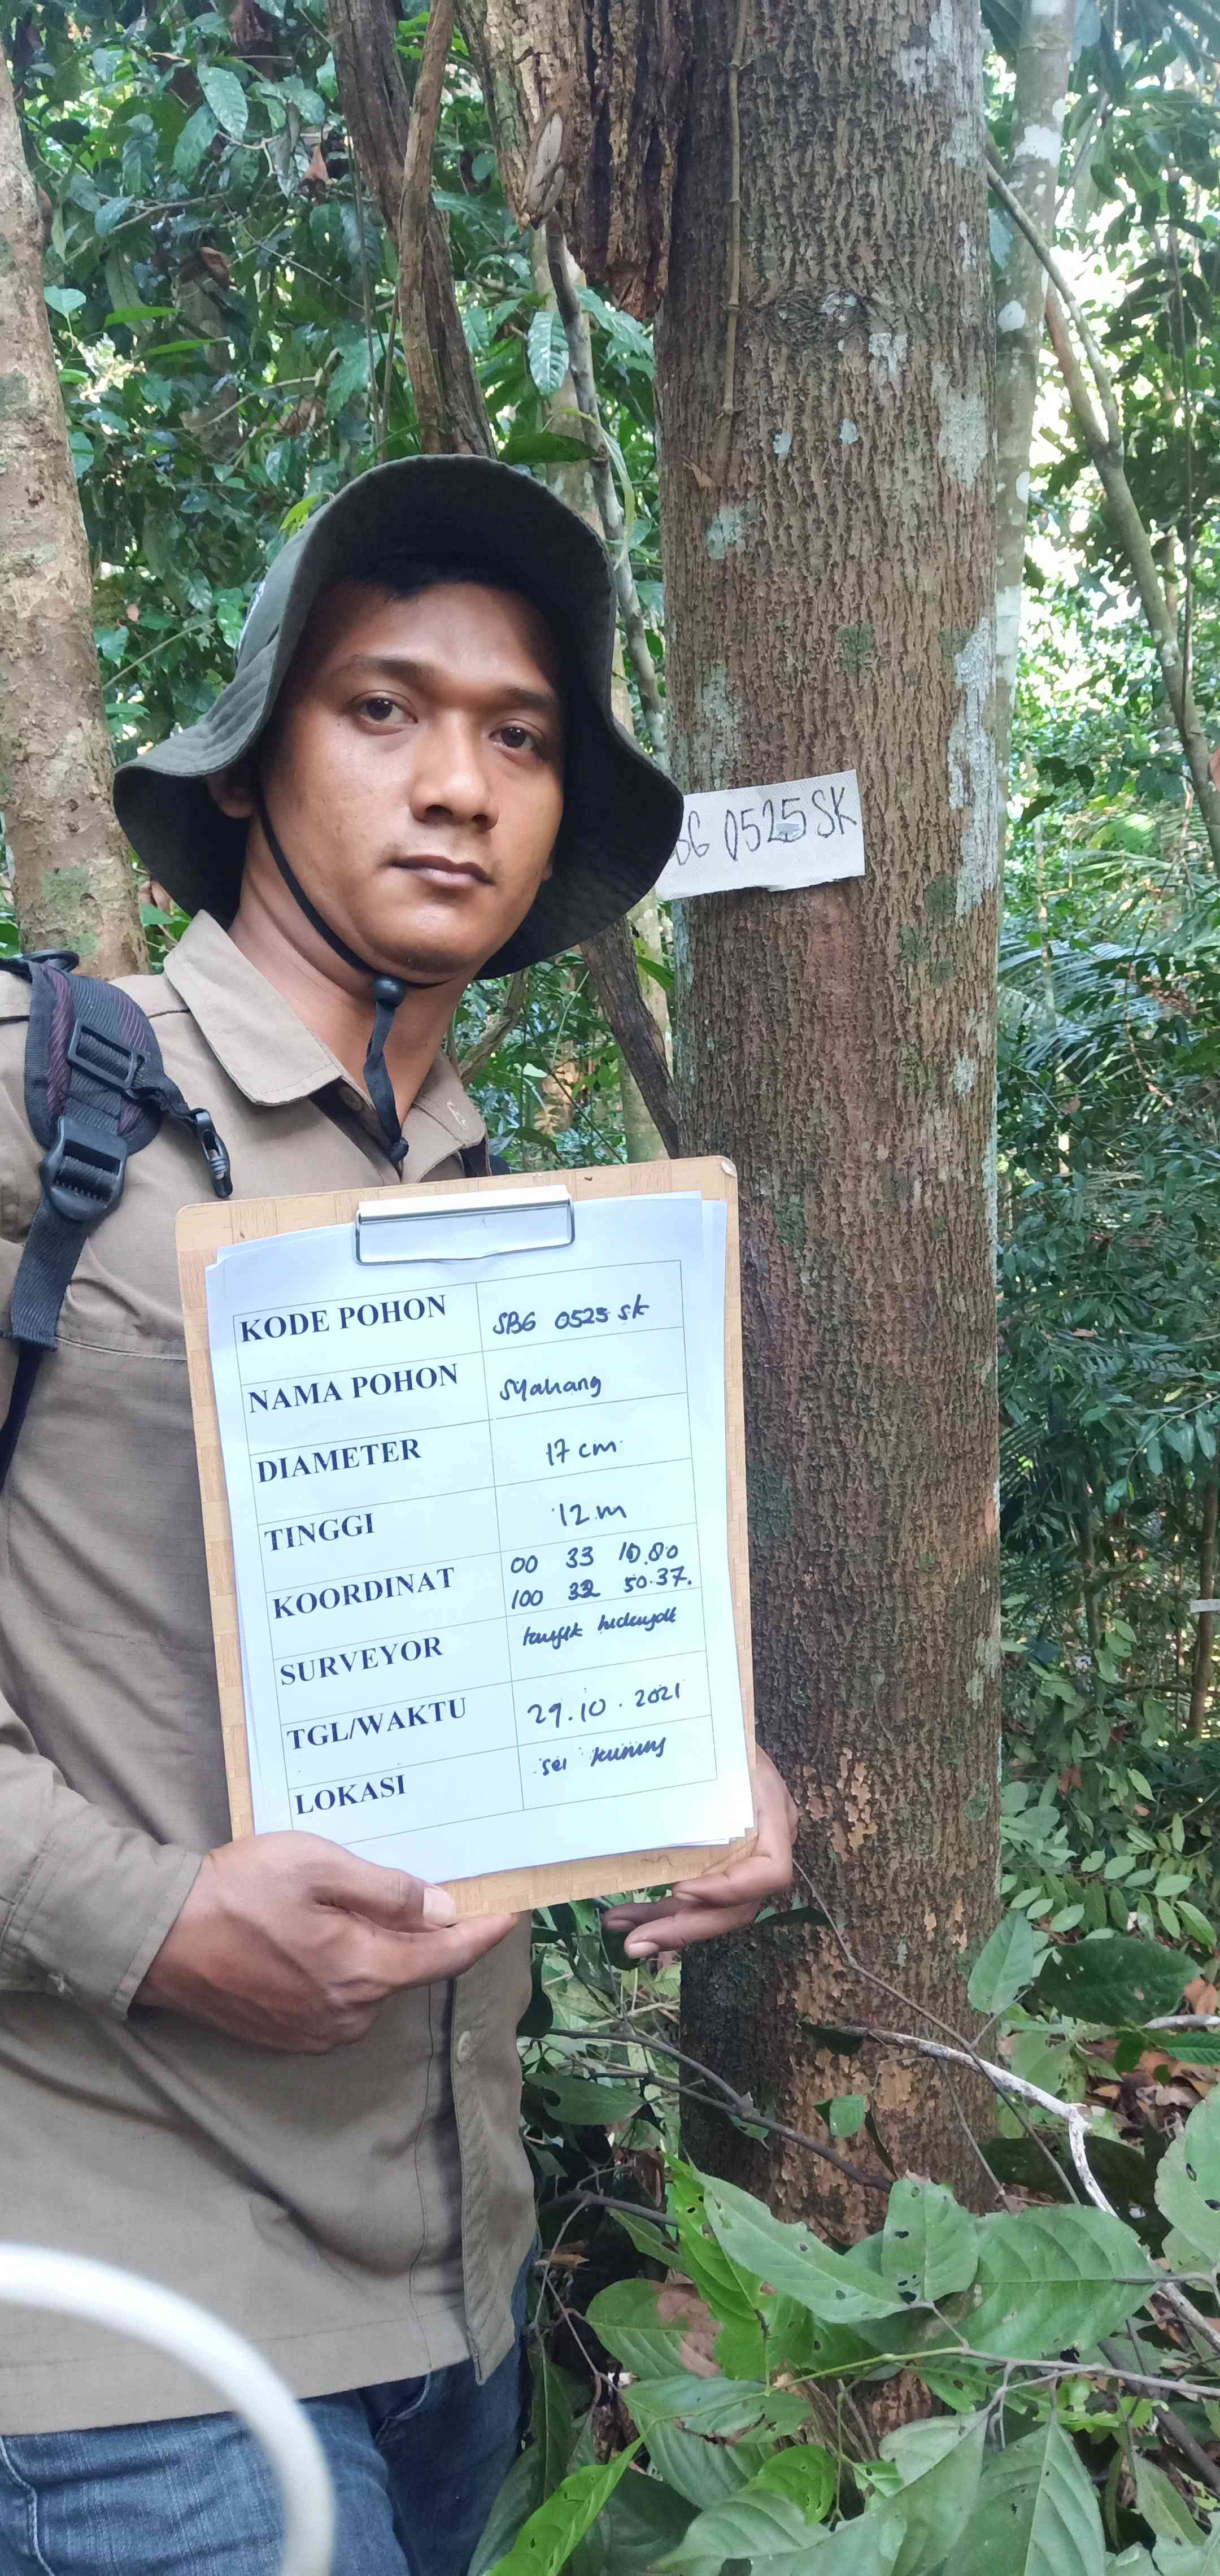 SBG 0525 SK
KODE POHON SBG 0525 SK
NAMA POHON Siyahang
DIAMETER 17 cm
TINGGI 12 m
KOORDINAT 00 33 10.80
100 32 50.37.
SURVEYOR taufik hidayat
TGL/WAKTU 29.10.2021
LOKASI sei kuning